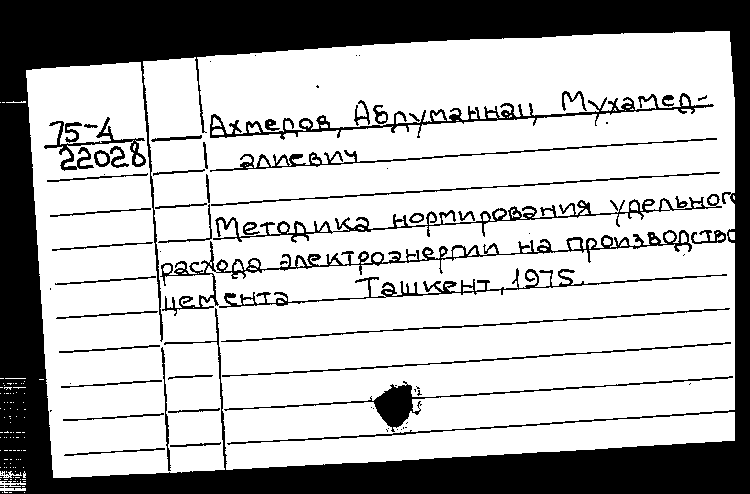 75-4
22028
Ахмедов, Абдуманнап Мухамед-
алиевич
Методика нормирования удельного
расхода электроэнергии на производство
цемента Ташкент, 1975.